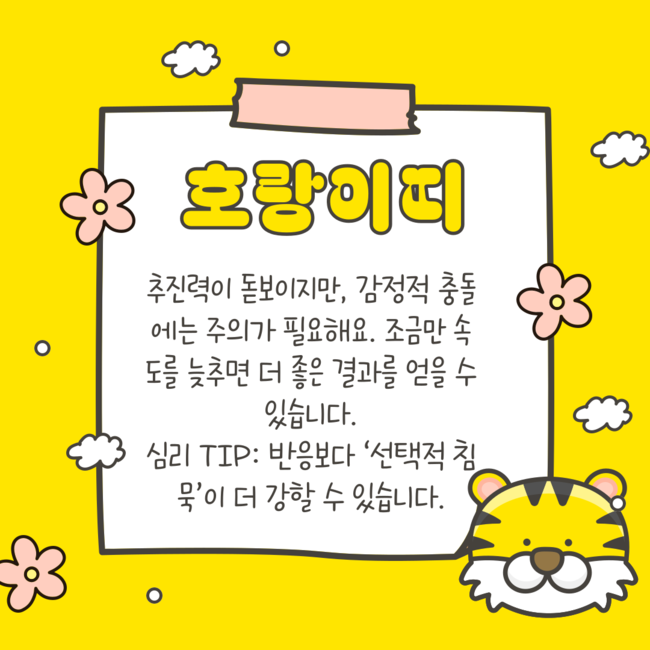 호랑이띠
추진력이 돋보이지만, 감정적 충돌
에는 주의가 필요해요. 조금만 속
도를 늦추면 더 좋은 결과를 얻을 수
있습니다.
심리 TIP: 반응보다 ‘선택적 침
묵’이 더 강할 수 있습니다.